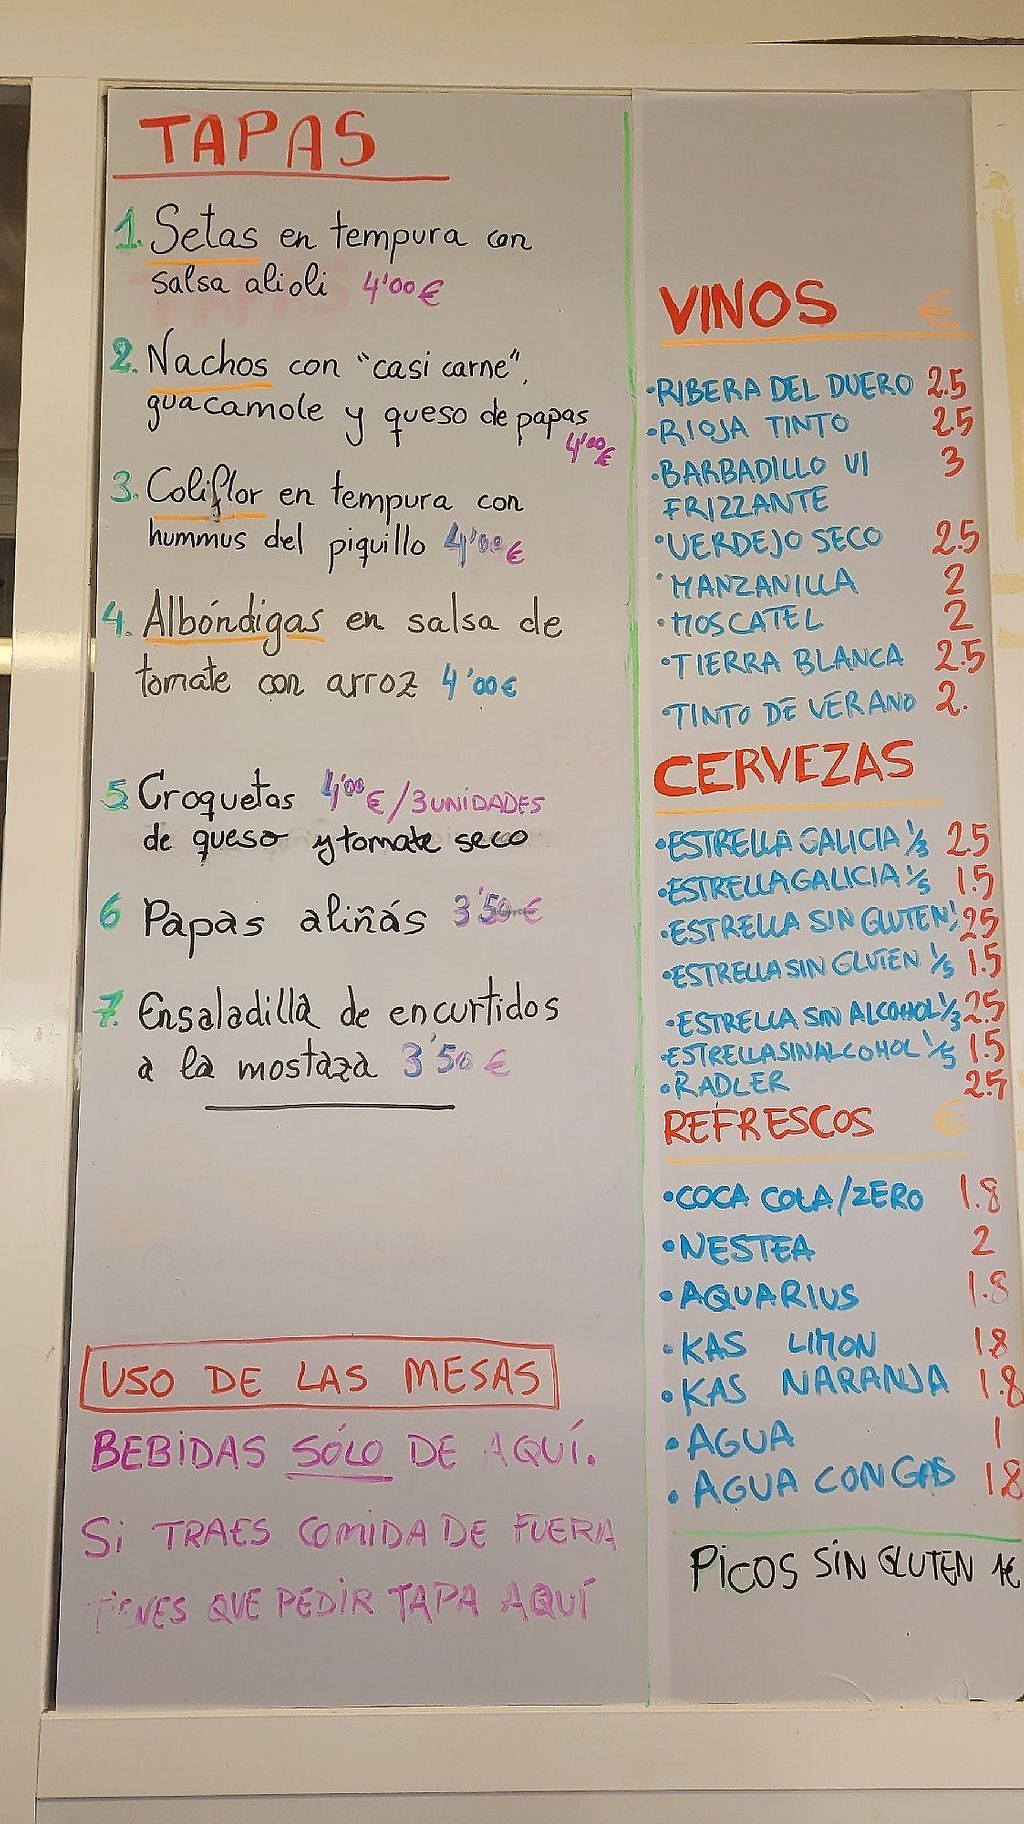 TAPAS
1. Setas en tempura con
salsa alioli 4'00 €
2. Nachos con "casi carne",
guacamole y queso de papas
4'00 €
3. Coliflor en tempura con
hummus del piquillo 4'00 €
4. Albóndigas en salsa de
tomate con arroz 4'00 €
5. Croquetas 4'00 € / 3 UNIDADES
de queso y tomate seco
6 Papas aliñás 3'50 €
7. Ensaladilla de encurtidos
a la mostaza 3'50 €
USO DE LAS MESAS
BEBIDAS SÓLO DE AQUÍ.
Si TRAES COMIDA DE FUERA
TIENES QUE PEDIR TAPA AQUÍ
VINOS €
•RIBERA DEL DUERO 2.5
•RIOJA TINTO 2.5
•BARBADILLO VI 3
FRIZZANTE
•VERDEJO SECO 2.5
•MANZANILLA 2
•MOSCATEL 2
•TIERRA BLANCA 2.5
•TINTO DE VERANO 2.
CERVEZAS
•ESTRELLA GALICIA 1/3 2.5
•ESTRELLA GALICIA 1/5 1.5
•ESTRELLA SIN GLUTEN 25
•ESTRELLA SIN GLUTEN 1/5 1.5
•ESTRELLA SIN ALCOHOL 1/3 2.5
•ESTRELLA SIN ALCOHOL 1/5 1.5
•RADLER 2.5
REFRESCOS €
•COCA COLA/ZERO 1.8
•NESTEA 2
•AQUARIUS 1.8
•KAS LIMON 1.8
•KAS NARANJA 1.8
•AGUA 1
•AGUA CON GAS 1.8
PiCOS SiN GLUTEN 1€